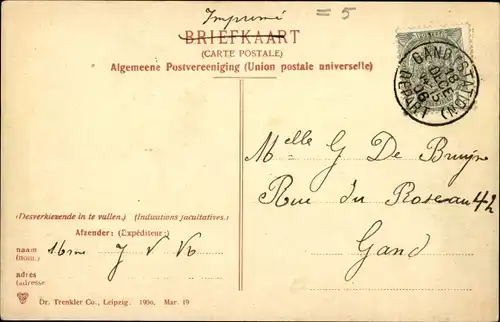 Imprimé = 5
BRIEFKAART
(CARTE POSTALE)
Algemeene Postvereeniging (Union postale universelle)
GAND (STATION)
DEPART
Melle G De Bruyn
Rue du Roseau 42
Gand
(Desverkiezende in te vullen.) (Indications facultatives.)
Afzender: (Expéditeur:)
naam
(nom:)
adres
(adresse
Dr. Trenkler Co., Leipzig. 1906, Mar. 19